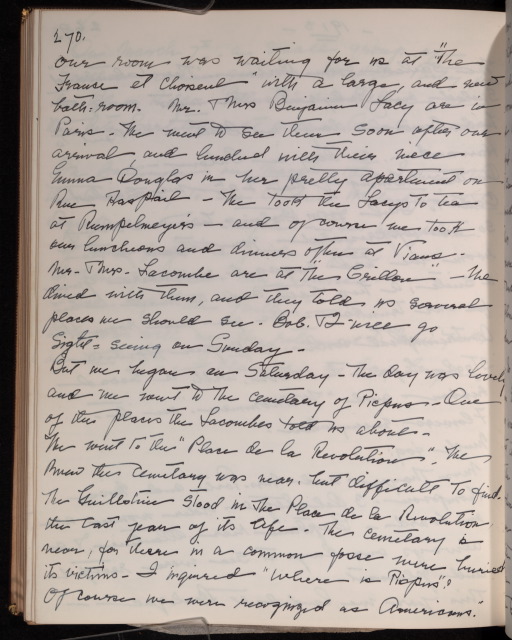 270.
Our room was waiting for us at "The
France et Choiseul" with a large, and new
bath-room. Mr. & Mrs Benjamin Lacy are in
Paris - We went to see them soon after our
arrival, and lunched with their niece
Emma Douglas in her pretty apartment on
Rue Raspail - We took the Lacys to tea
at Rumpelmeyer's - and of course we took
our luncheons and dinners often at Viaus -
Mr. & Mrs. Lacombe are at "The Crillon" - We
dined with them, and they told us several
places we should see. Bob. & I will go
Sight-seeing on Sunday -
But we began on Saturday - The day was lovely
and we went to the Cemetary of Picpus - One
of the places the Lacombes told us about -
We went to the "Place de la Revolution". We
knew the Cemetary was near, but difficult to find.
The Guillotine stood in the Place de la Revolution
the last year of its life. The cemetary is
near, for there in a common fosse were buried
its victims - I inquired "Where is Picpus"?
Of course we were recognized as Americans.